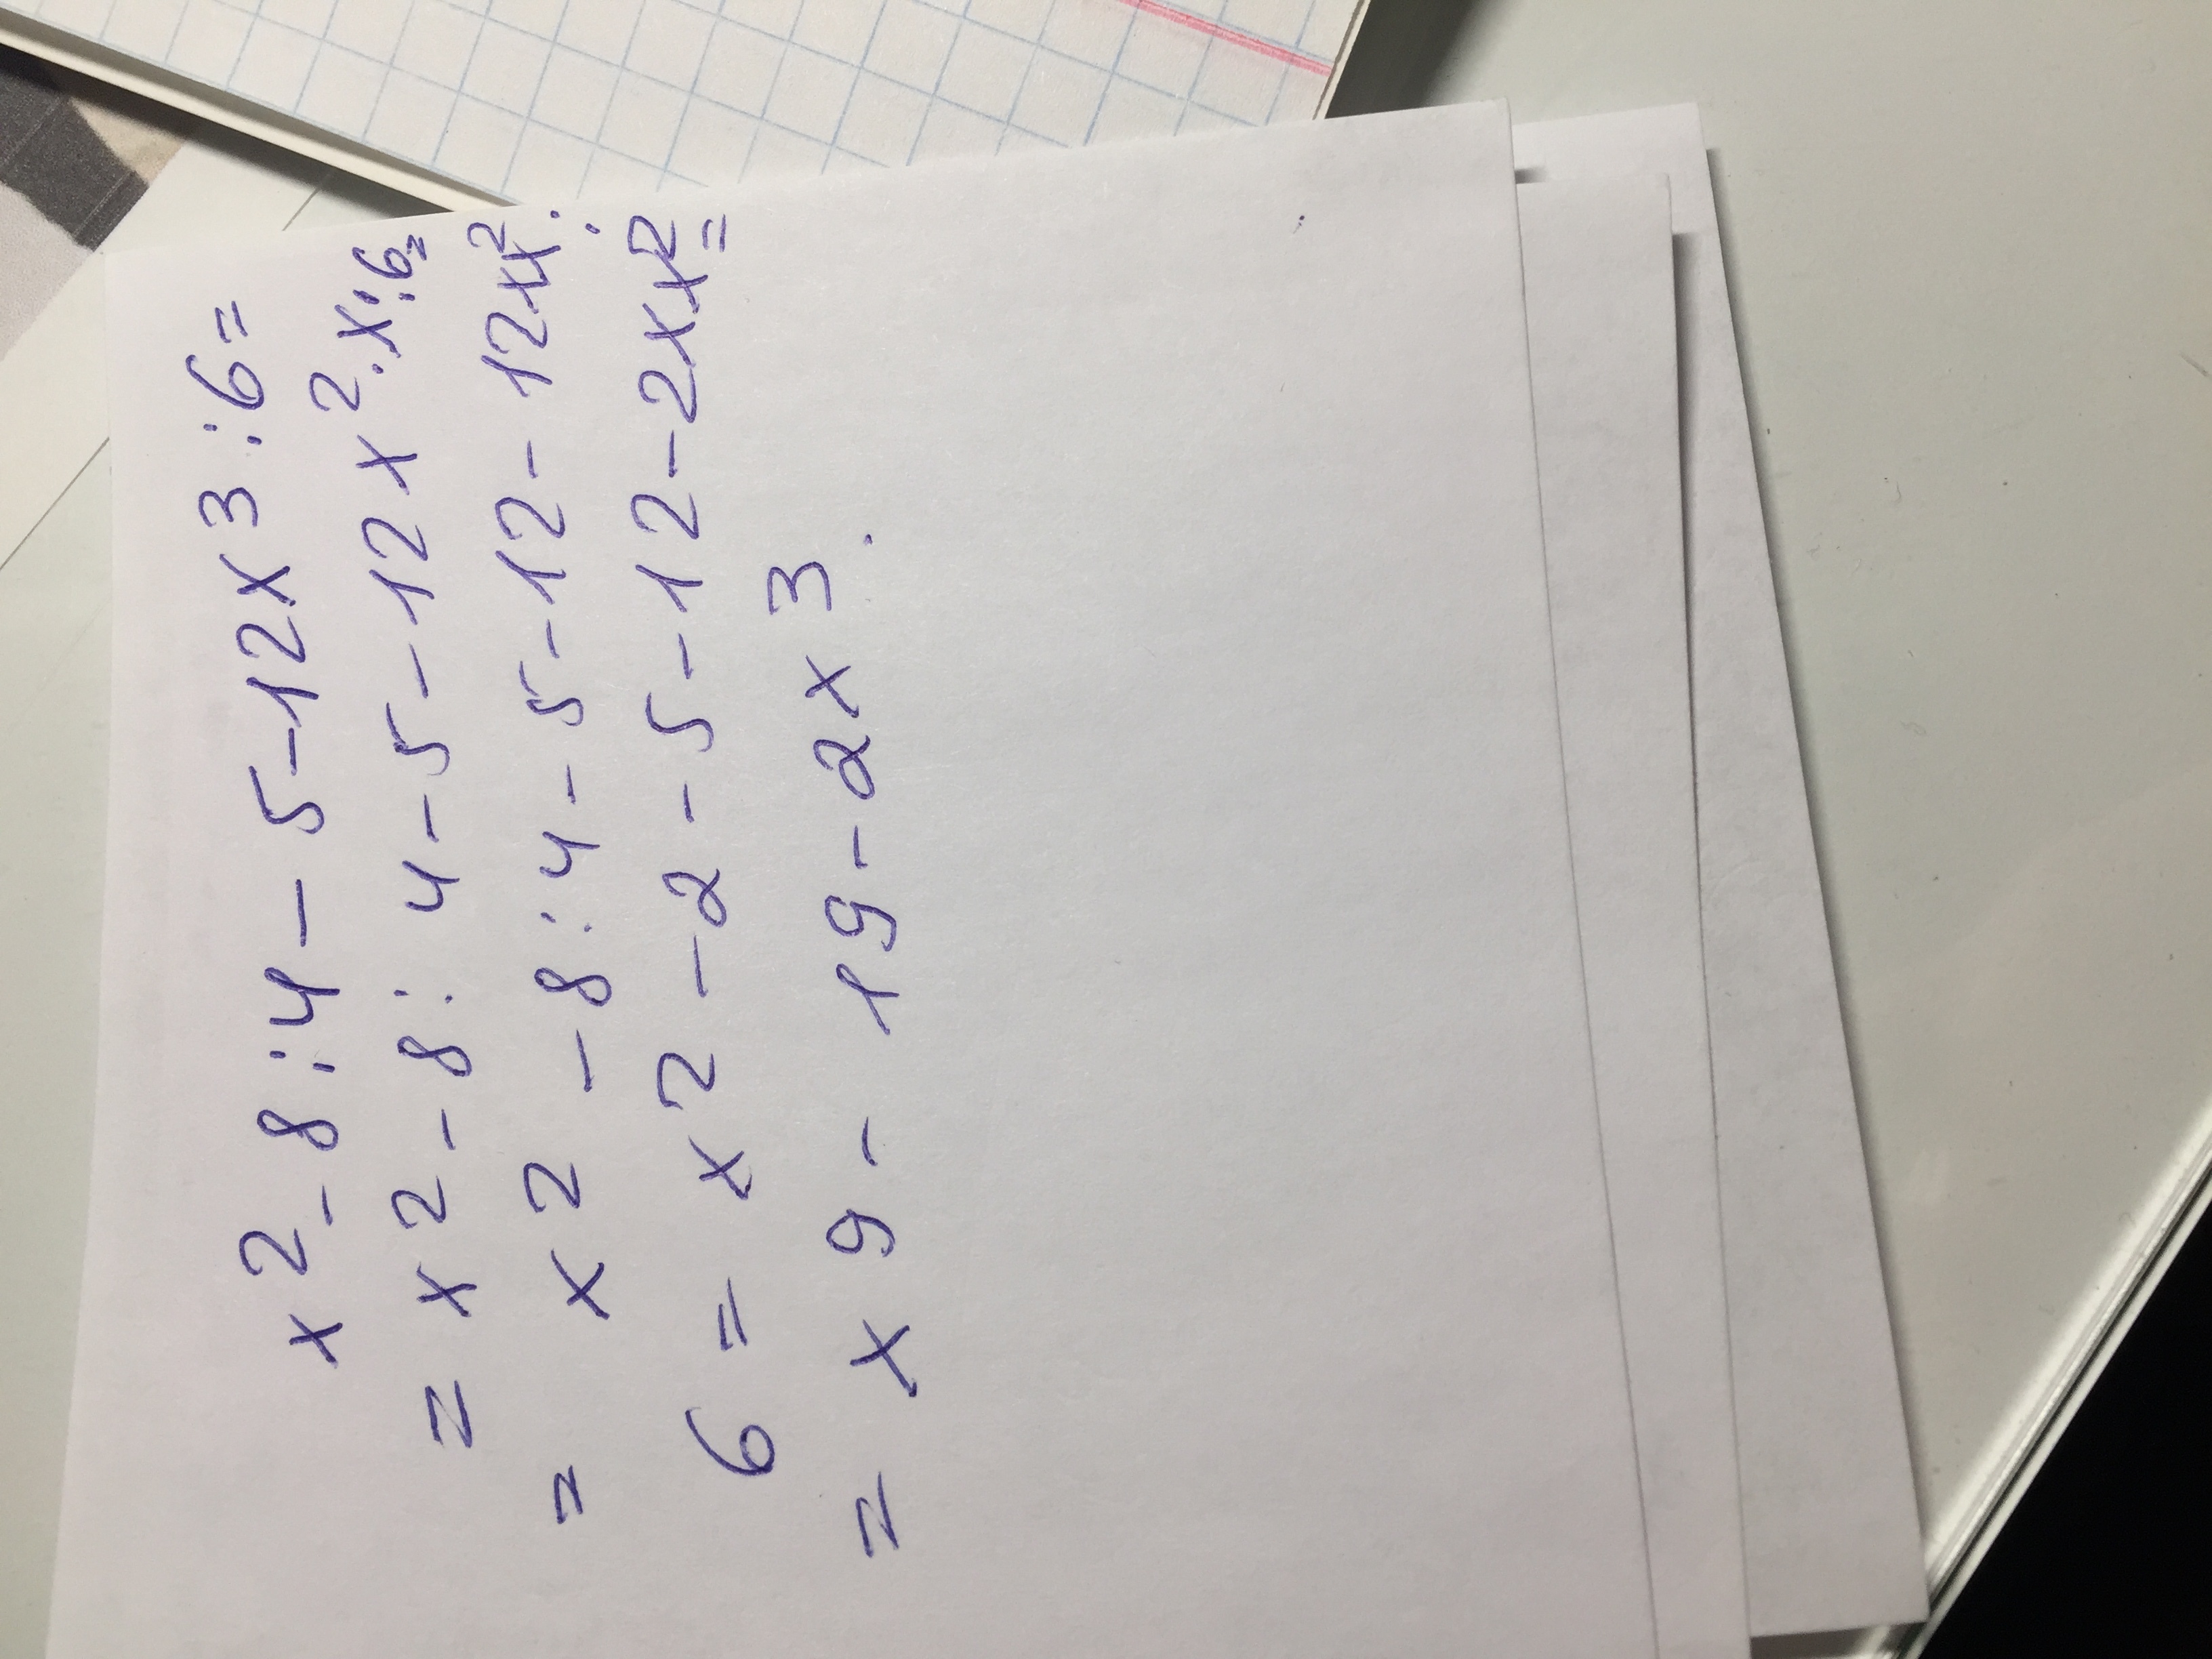 x2-8:4-5-12x3:6=
=x2-8:4-5-12x2·x:6=
=x2-8:4-5-12-12xx2:
6=x2-2-5-12-2xx2=
=x9-19-2x3.